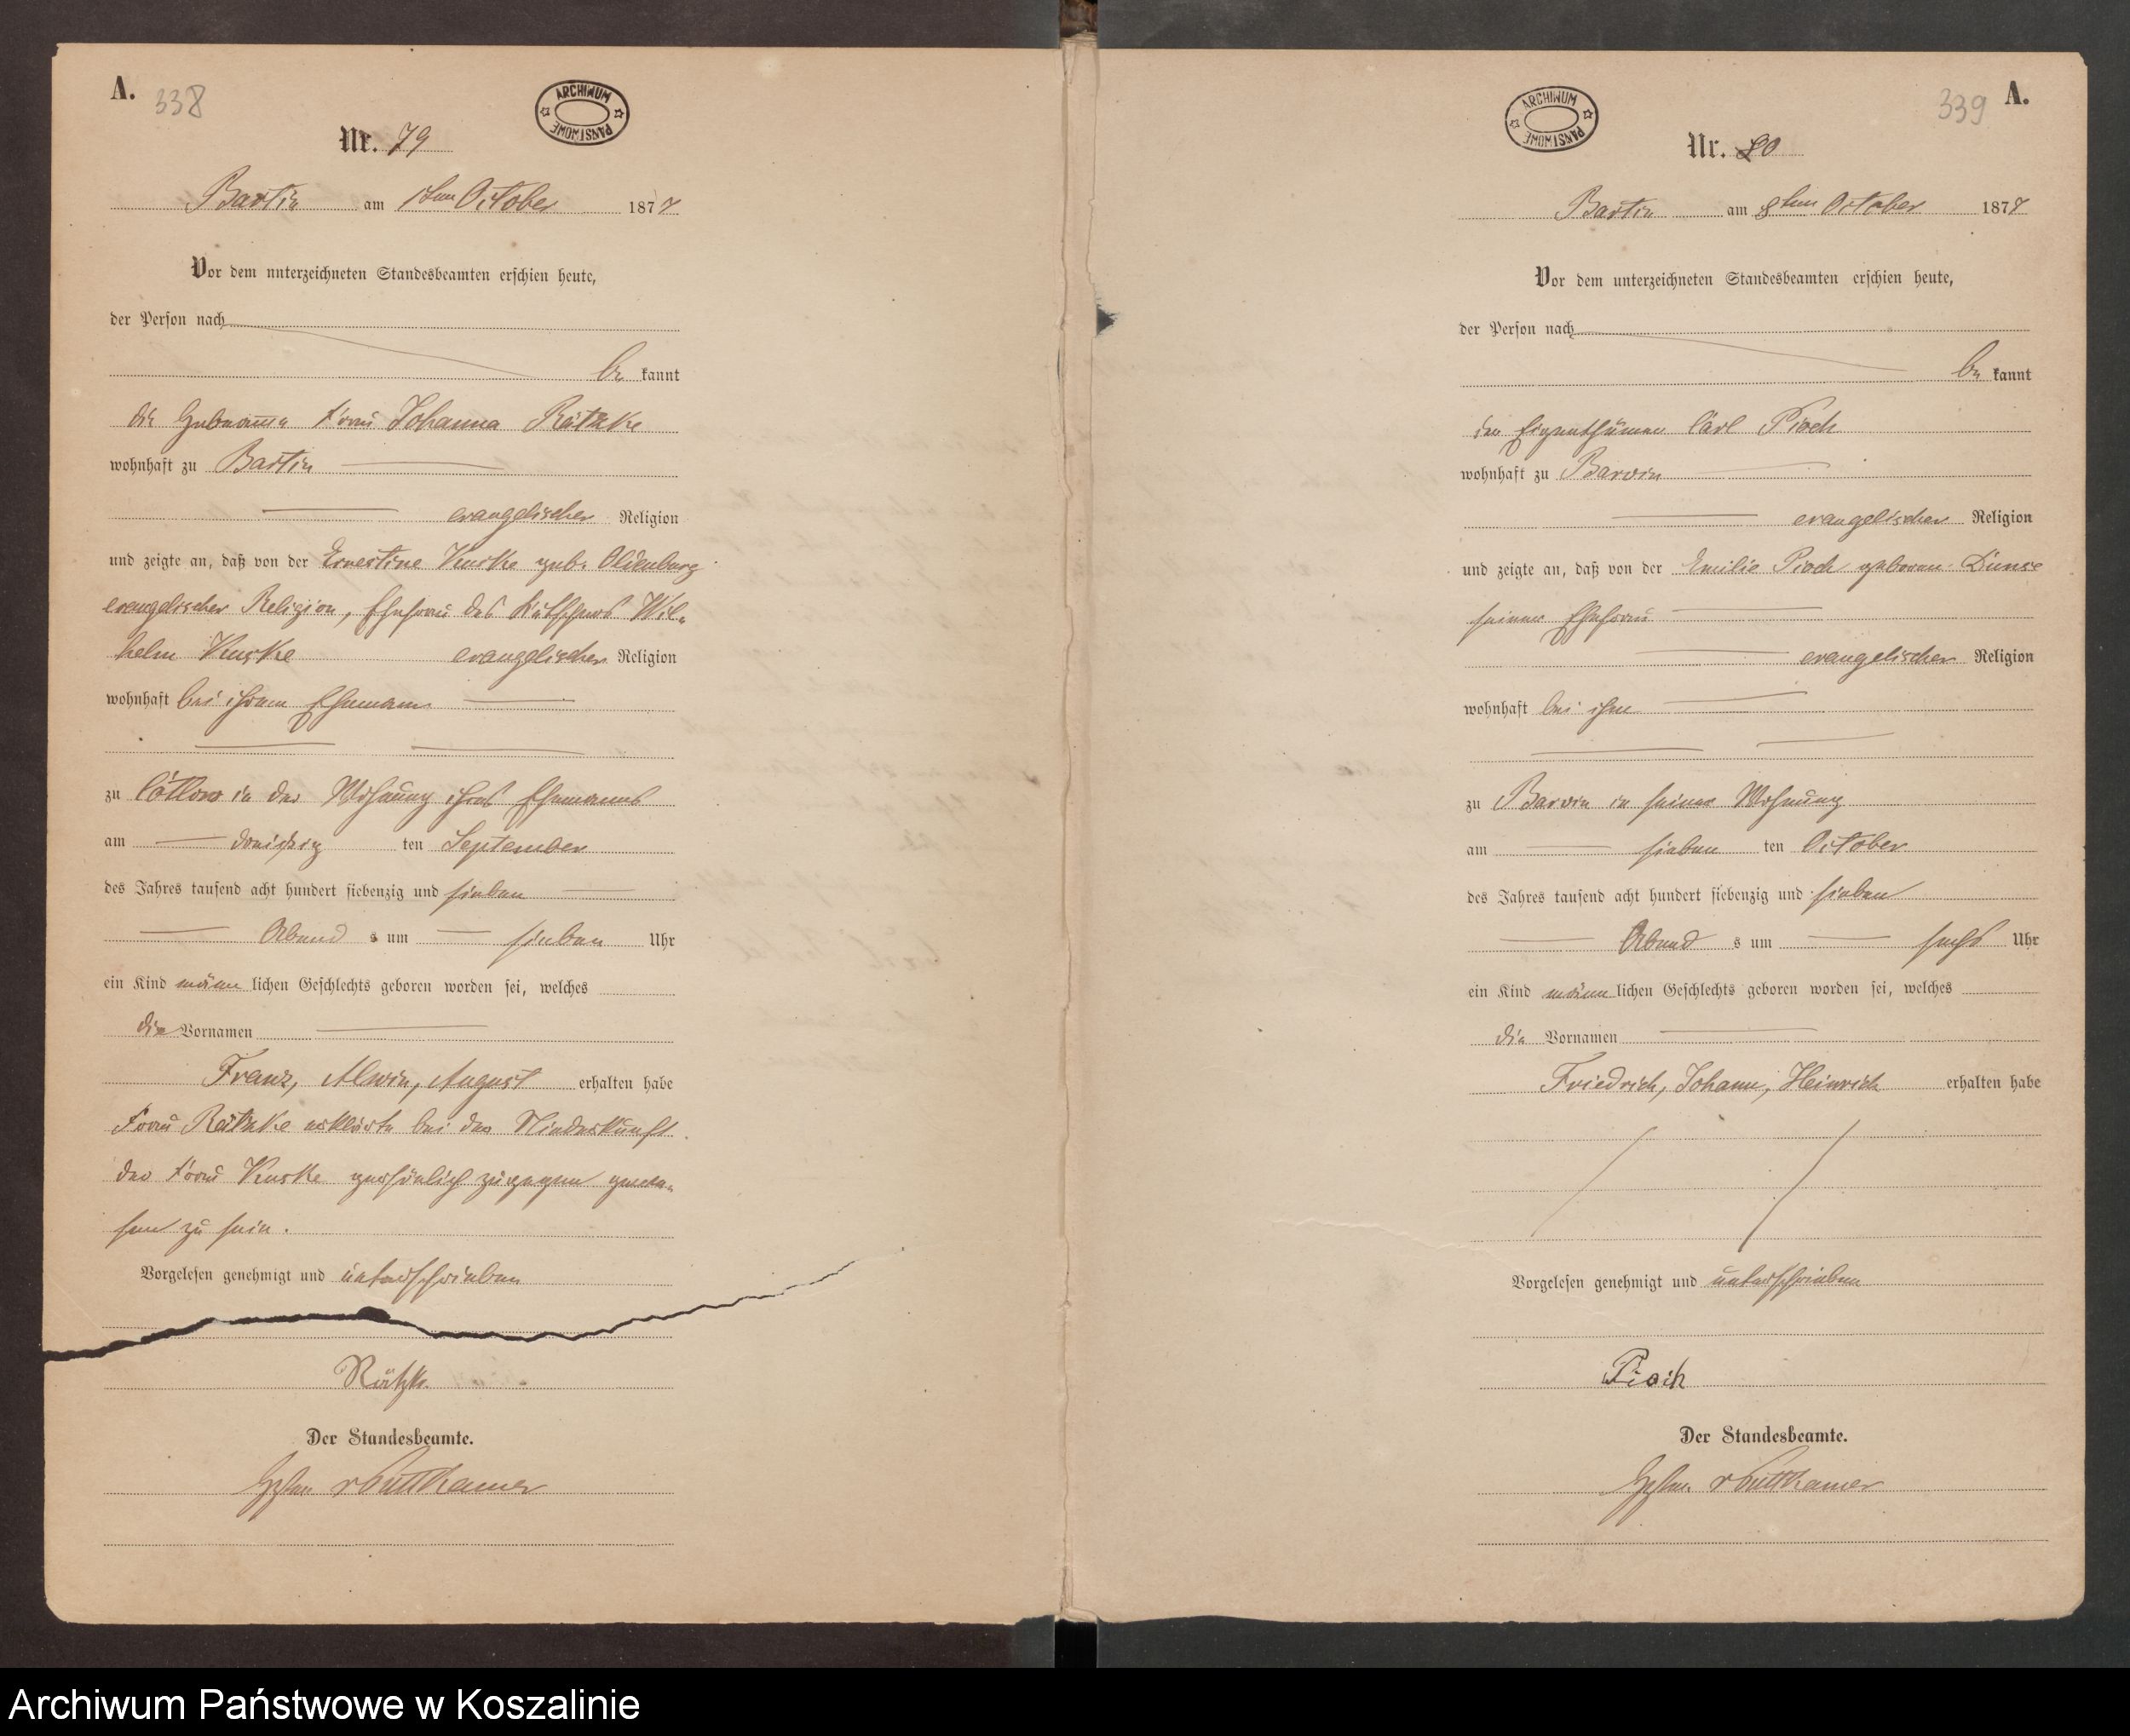 A.
338
ARCHIWUM PAŃSTWOWE
Nr. 79
Bartin am 1ten October 1877
Vor dem unterzeichneten Standesbeamten erschien heute,
der Person nach
be kannt
die Hebamme Frau Johanna Rätzke
wohnhaft zu Bartin
evangelischer Religion
und zeigte an, daß von der Ernestine Kuske geb. Oldenburg
evangelischer Religion, Ehefrau des Wil-
helm Kuske evangelischer Religion
wohnhaft bei ihrem Ehemann
zu Cötlow in der Wohnung ihres Ehemannes
am dreißig ten September
des Jahres tausend acht hundert siebenzig und sieben
Abend s um sieben Uhr
ein Kind männ lichen Geschlechts geboren worden sei, welches
die Vornamen
Franz, Alwin, August erhalten habe
Frau Rätzke erklärte bei der Niederkunft
der Frau Kuske persönlich zugegen gewe-
sen zu sein.
Vorgelesen genehmigt und unterschrieben
Rätzke
Der Standesbeamte.
v Puttkamer
339
A.
ARCHIWUM PAŃSTWOWE
Nr. 80
Bartin am 8ten October 1877
Vor dem unterzeichneten Standesbeamten erschien heute,
der Person nach
be kannt
der Eigenthümer Carl Pioch
wohnhaft zu Barvin
evangelischer Religion
und zeigte an, daß von der Emilie Pioch geboren Dunse
seiner Ehefrau
evangelischer Religion
wohnhaft bei ihm
zu Barvin in seiner Wohnung
am sieben ten October
des Jahres tausend acht hundert siebenzig und sieben
Abend s um sechs Uhr
ein Kind männ lichen Geschlechts geboren worden sei, welches
die Vornamen
Friedrich, Johann, Heinrich erhalten habe
Vorgelesen genehmigt und unterschrieben
Pioch
Der Standesbeamte.
v Puttkamer
Archiwum Państwowe w Koszalinie